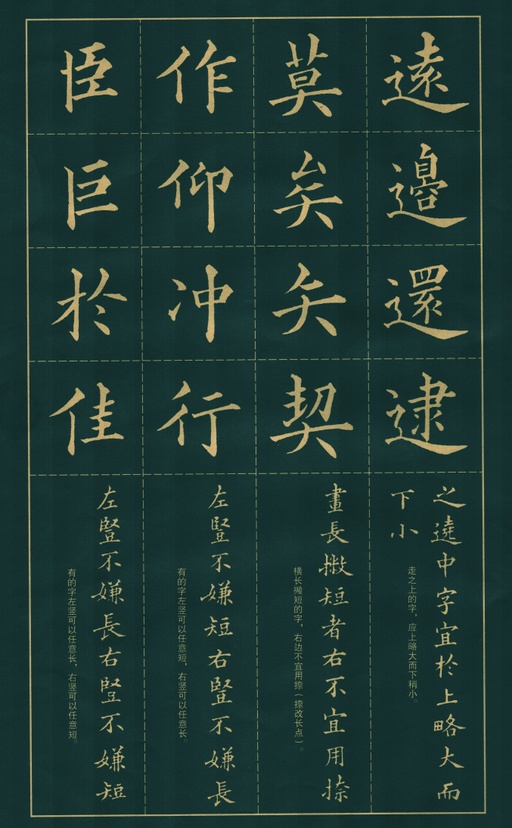 遠邊還逮
之遶中字宜於上略大而
下小
走之上的字，应上略大而下稍小。
莫矣矢契
畫長撇短者右不宜用捺
横长撇短的字，右边不宜用捺（捺改长点）。
作仰冲行
左豎不嫌短右豎不嫌長
有的字左竖可以任意短，右竖可以任意长。
臣巨於佳
左豎不嫌長右豎不嫌短
有的字左竖可以任意长，右竖可以任意短。